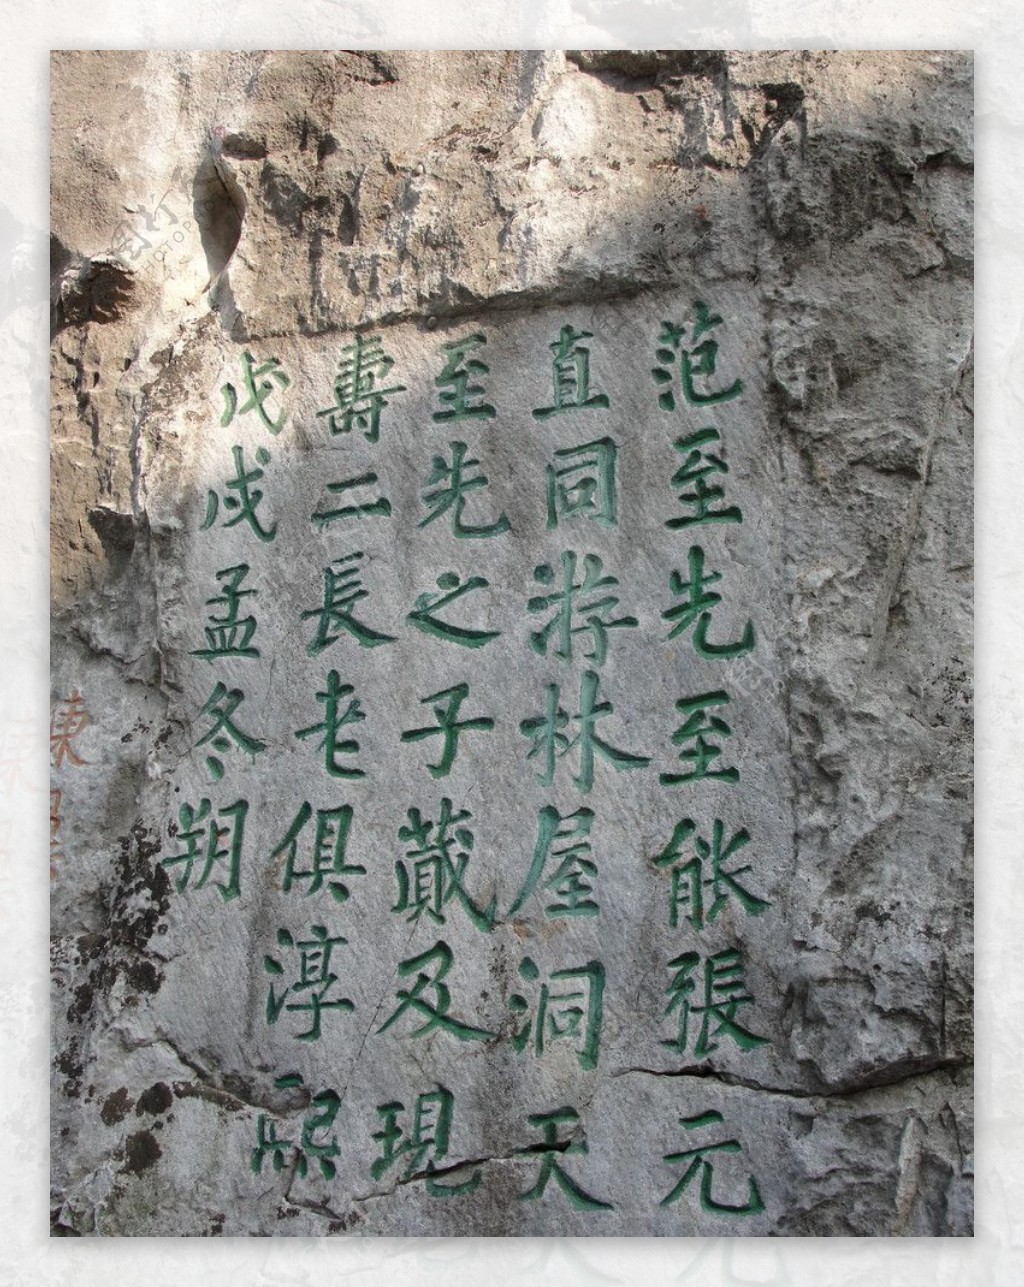 范至先至能張元
直同游林屋洞天
至先之子藏及現
壽二長老俱淳熙
戊戌孟冬朔